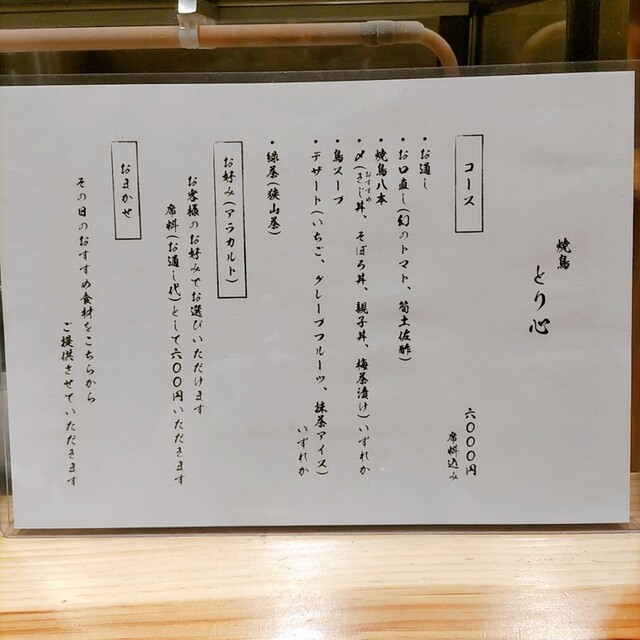 焼鳥 とり心
コース
六000円
席料込み
・お通し
・お口直し(幻のトマト、筍土佐酢)
・焼鳥八本
おすすめ
・〆(きじ丼、そぼろ丼、親子丼、梅茶漬け)いずれか
・鳥スープ
・デザート(いちご、グレープフルーツ、抹茶アイス)
いずれか
・緑茶(狭山茶)
お好み(アラカルト)
お客様のお好みでお選びいただけます
席料(お通し代)として六00円いただきます
おまかせ
その日のおすすめ食材をこちらから
ご提供させていただきます